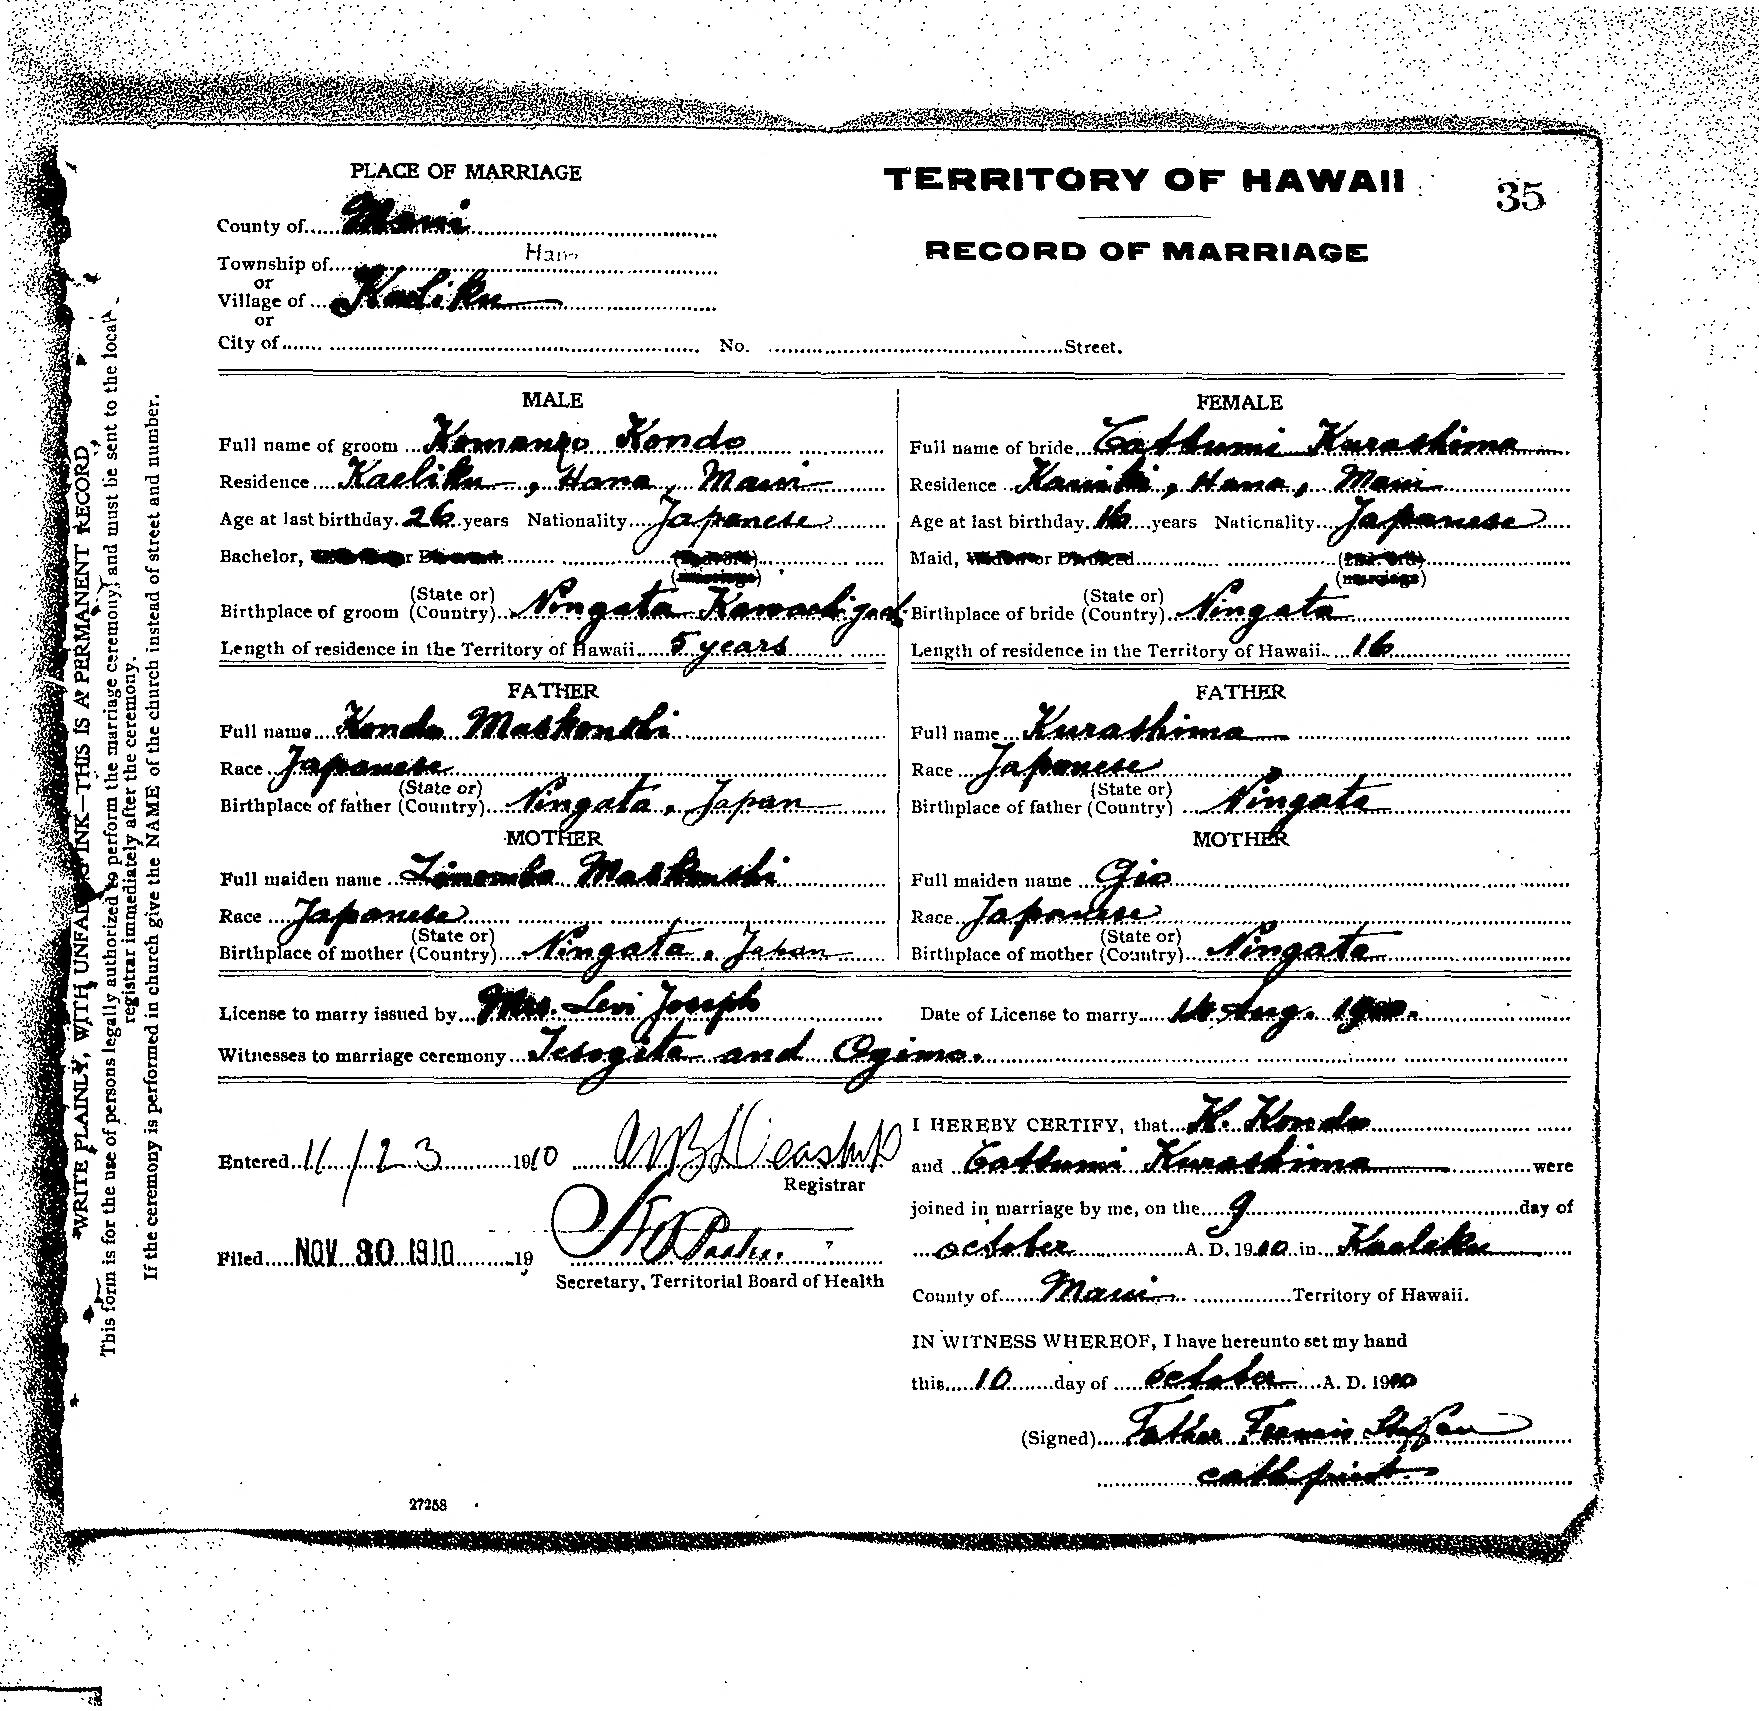 PLACE OF MARRIAGE
TERRITORY OF HAWAII
35
County of Maui
RECORD OF MARRIAGE
Township of Hana
or
Village of Kaeliku
or
City of No. Street.
MALE
Full name of groom Komanzo Kondo
Residence Kaeliku, Hana, Maui
Age at last birthday. 26 years Nationality Japanese
Bachelor, or
Birthplace of groom (State or Country) Ningata
Length of residence in the Territory of Hawaii 5 years
FATHER
Full name Kondo Maskonshi
Race Japanese
Birthplace of father (State or Country) Ningata, Japan
MOTHER
Full maiden name Maskonshi
Race Japanese
Birthplace of mother (State or Country) Ningata, Japan
FEMALE
Full name of bride Cattumi Kurashima
Residence , Hana, Maui
Age at last birthday. 16 years Nationality Japanese
Maid, Widow or Divorced
Birthplace of bride (State or Country) Ningata
Length of residence in the Territory of Hawaii 16
FATHER
Full name Kurashima
Race Japanese
Birthplace of father (State or Country) Ningata
MOTHER
Full maiden name Gio
Race Japanese
Birthplace of mother (State or Country) Ningata
License to marry issued by Mrs. Levi Joseph Date of License to marry Aug. 1910.
Witnesses to marriage ceremony Tesogita and Ogima.
Entered 11/23 1910
Registrar
Filed NOV 30 1910 19
Secretary, Territorial Board of Health
I HEREBY CERTIFY, that K. Kondo
and Cattumi Kurashima were
joined in marriage by me, on the 9 day of
october A. D. 1910 in Kaeliku
County of Maui Territory of Hawaii.
IN WITNESS WHEREOF, I have hereunto set my hand
this 10 day of october A. D. 1910
(Signed) Father Francis Steffen
cath. priest.
27258
WRITE PLAINLY, WITH UNFADING INK—THIS IS A PERMANENT RECORD
This form is for the use of persons legally authorized to perform the marriage ceremony, and must be sent to the local
registrar immediately after the ceremony.
If the ceremony is performed in church give the NAME of the church instead of street and number.